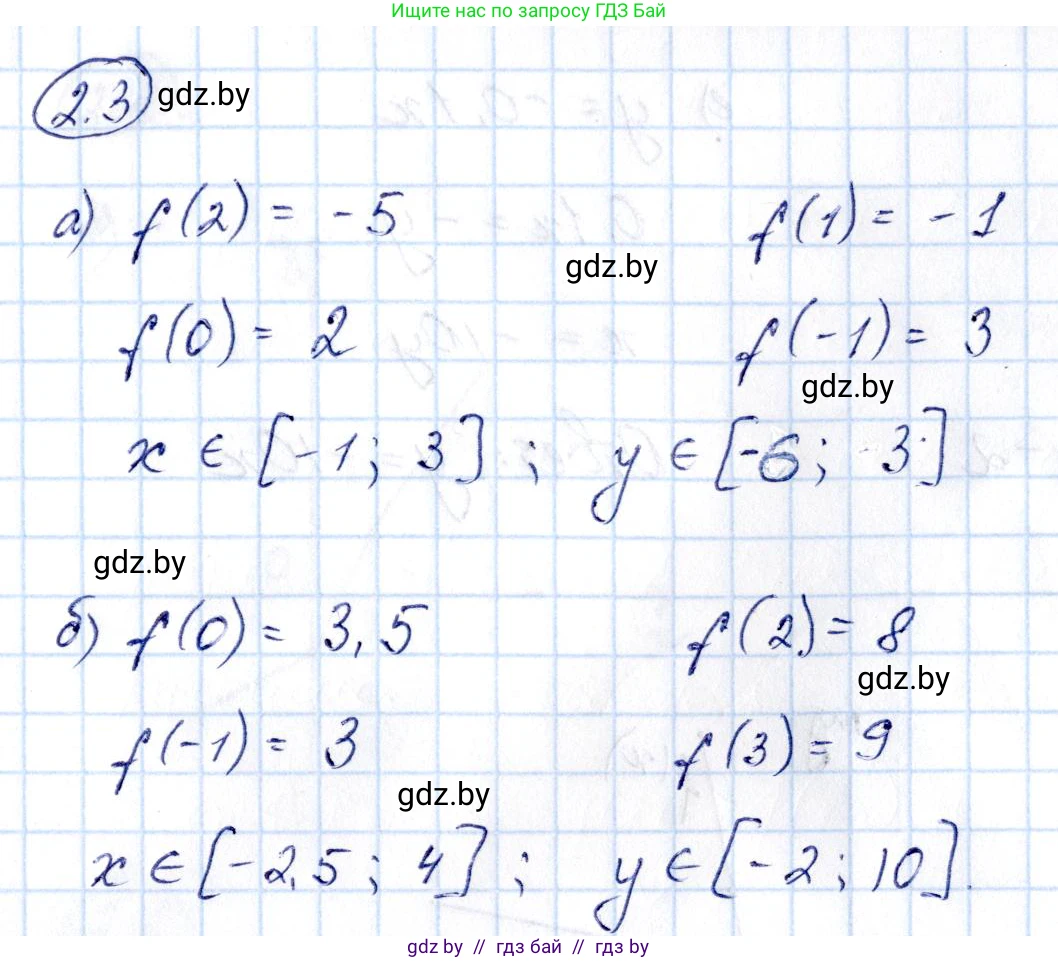 Ищите нас по запросу ГДЗ Бай
2.3 gdz.by
а) f(2) = -5 f(1) = -1
gdz.by
f(0) = 2 f(-1) = 3
gdz.by
x ∈ [-1; 3]; y ∈ [-6; 3]
gdz.by
б) f(0) = 3,5 f(2) = 8
gdz.by
f(-1) = 3 f(3) = 9
gdz.by
x ∈ [-2,5; 4]; y ∈ [-2; 10].
gdz.by // гдз бай // гдз by